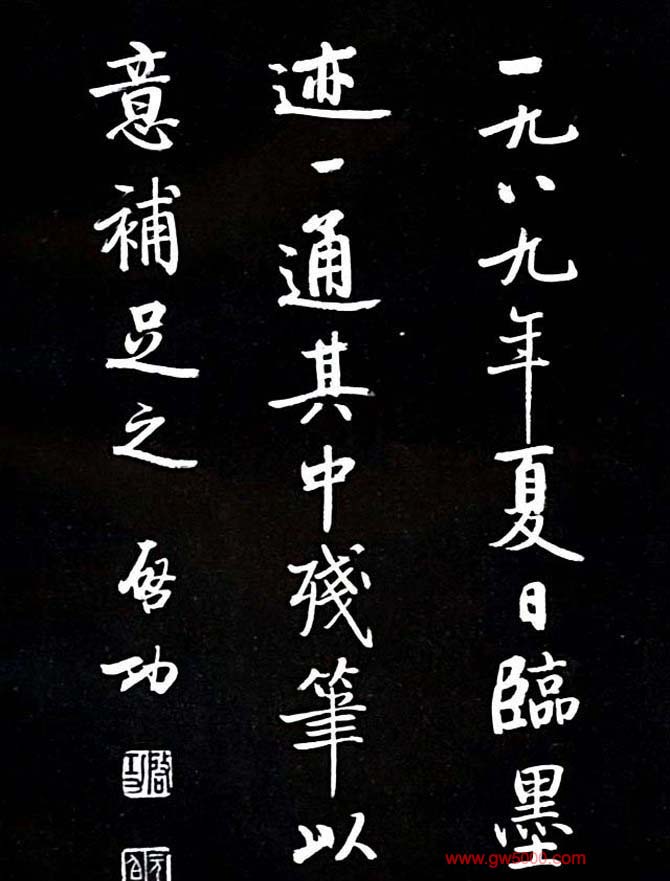 一九八九年夏日臨墨
迹一通其中殘筆以
意補足之 啓功
啓功
元白
www.gw5000.com